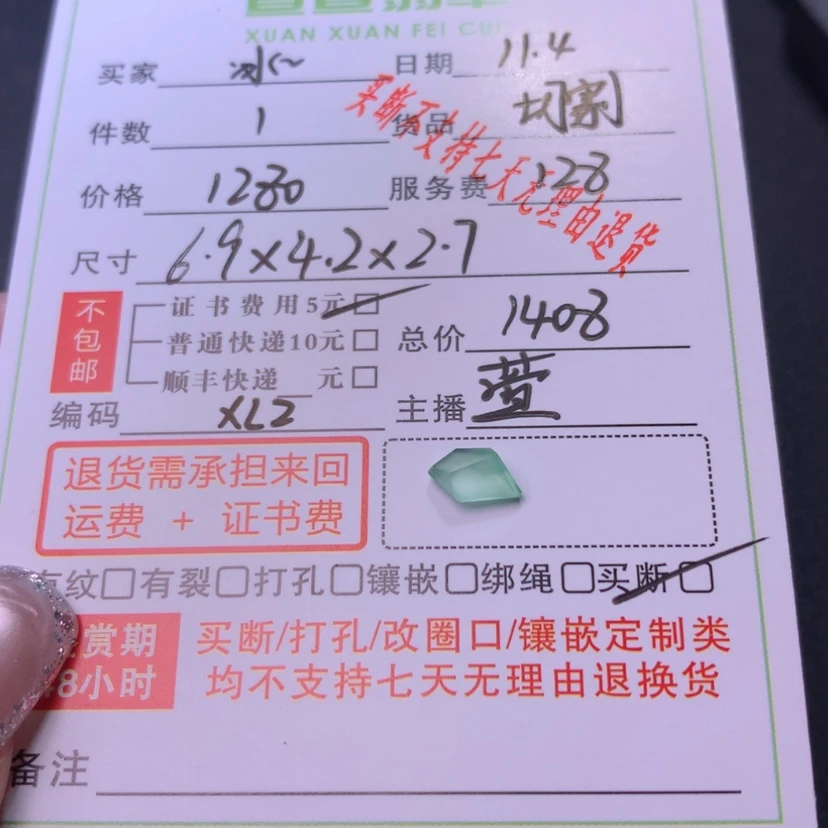 XUAN XUAN FEI CUI
买家 冰~ 日期 11.4
件数 1 货品 切割
价格 1280 服务费 128
买断不支持七天无理由退货
尺寸 6.9×4.2×2.7
不包邮
证书费用5元□
普通快递10元□ 总价 1408
顺丰快递__元□
编码 XL2 主播 萱
退货需承担来回
运费 + 证书费
有纹□有裂□打孔□镶嵌□绑绳□买断□
赏期
48小时
买断/打孔/改圈口/镶嵌定制类
均不支持七天无理由退换货
备注